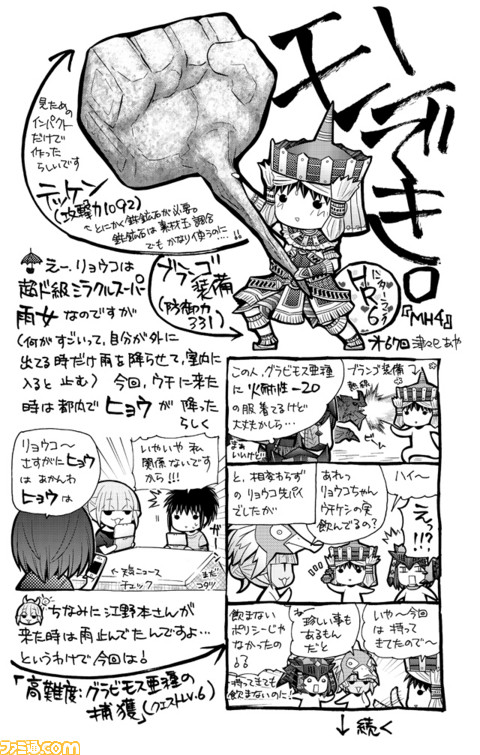 モンでき。
『MH4』
オ67回
ハンターランク
HR6
見ための
インパクト
だけで
作った
らしいです
テッケン
(攻撃力1092)
とにかく鉄鉱石が必要。
鉄鉱石は素材玉調合
でもかなり使うのに…!!
ブランゴ
装備
(防御力
331)
えー、リョウコは
超ド級ミラクルスーパー
雨女なのですが
(何がすごいって、自分が外に
出てる時だけ雨を降らせて、室内に
入ると止む) 今回、ウチに来た
時は都内でヒョウが降った
らしく
いやいや私
関係ないです
から!!!
リョウコ〜
さすがにヒョウ
はあかんわ
ヒョウは
←天気ニュース
チェック
まだ
コタツ
ちなみに江野本さんが
来た時は雨止んでたんですよ…
というわけで今回は↓
「高難度:グラビモス亜種の
捕獲」(クエストLV.6)
ブランゴ装備
この人、グラビモス亜種に
火耐性-20
の服着てるけど
大丈夫かしら…
まぁ
いいけど!!
熱線
ビーム
ハイ〜
えっ!!?
あれっ
リョウコちゃん
ウチケシの実
飲んでるの?
と、相変わらず
のリョウコ先パイ
でしたが
いや〜今回
は持って
きてたので〜
珍しい事も
あるもん
だと
ね〜
飲まない
ポリシーじゃ
なかったの
よる
持ってきても
飲まないのに!
↓続く
ファミ通.com